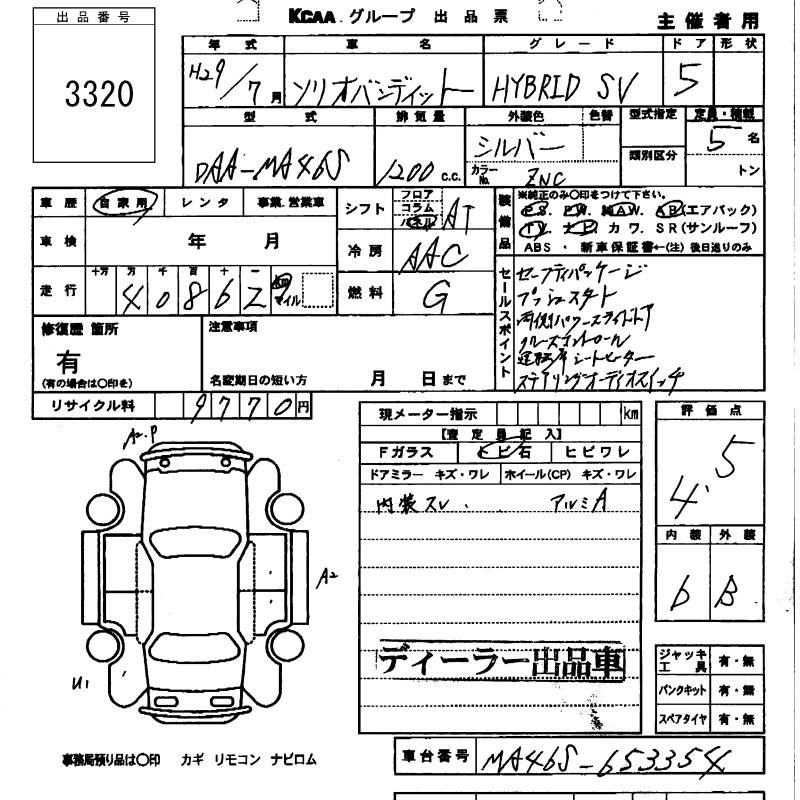 出品番号
3320
KCAA グループ 出品票
主催者用
年式 車名 グレード ドア 形状
H29/7月 ソリオバンディット HYBRID SV 5
型式 排気量 外装色 色替 型式指定 定員・積載
DAA-MA46S 1200 c.c. シルバー 5名
カラーNo. ZNC 類別区分 トン
車歴 自家用 レンタ 事業.営業車
シフト フロア コラム パネル AT
装備品 ※純正のみ○印をつけて下さい。
P.S. P.W. 純A.W. A.B(エアバック)
T.V. ナビ カワ. S R (サンルーフ)
ABS ・ 新車保証書←(注) 後日送りのみ
車検 年 月
冷房 AAC
走行 十万 万 千 百 十 一
40862 km マイル
燃料 G
セールスポイント
セーフティパッケージ
プッシュスタート
両側パワースライドドア
クルーズコントロール
運転席シートヒーター
ステアリングオーディオスイッチ
修復歴 箇所
有
(有の場合は○印を)
注意事項
名変期日の短い方 月 日まで
リサイクル料 9770円
現メーター指示 km
【査定員記入】
Fガラス トビ石 ヒビワレ
ドアミラー キズ・ワレ ホイール(CP) キズ・ワレ
内装スレ アルミA
評価点
4.5
内装 外装
b B
A2.P
A2
U1
ディーラー出品車
ジャッキ工具 有・無
パンクキット 有・無
スペアタイヤ 有・無
事務局預り品は○印 カギ リモコン ナビロム
車台番号 MA46S-653354